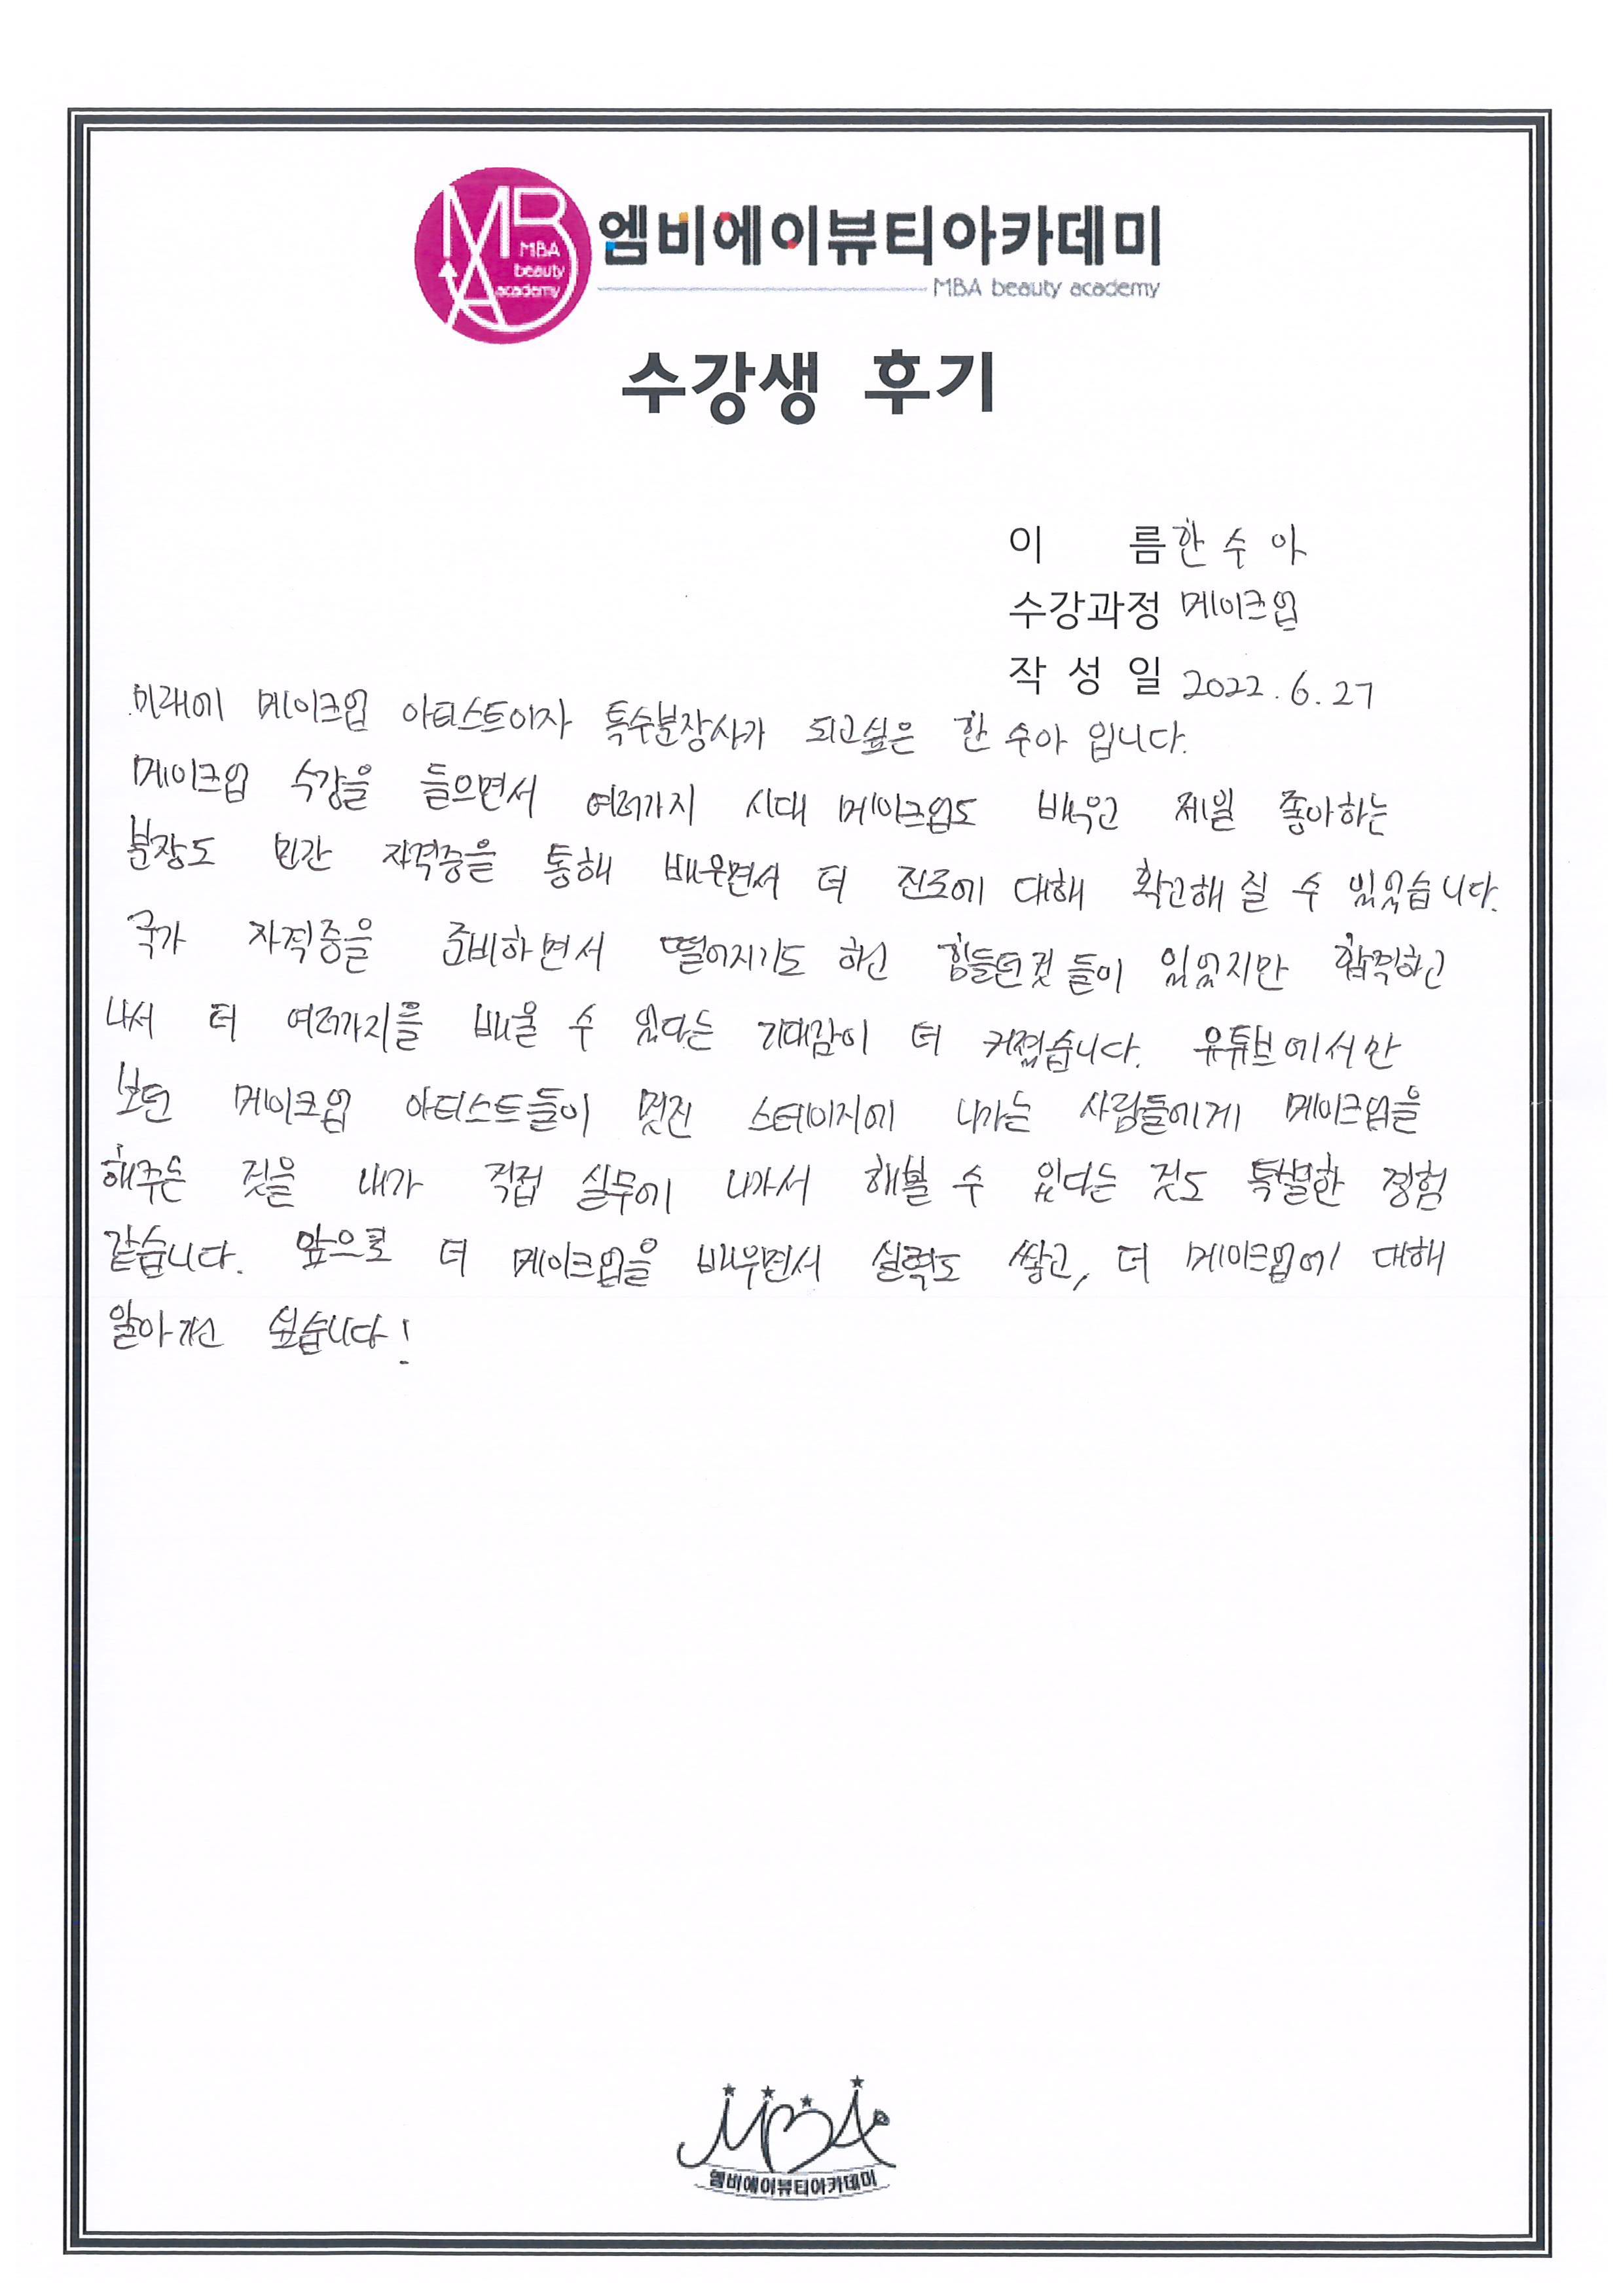 MBA
MBA
beauty
academy
엠비에이뷰티아카데미
MBA beauty academy
수강생 후기
이 름 한수아
수강과정 메이크업
작 성 일 2022.6.27
미래에 메이크업 아티스트이자 특수분장사가 되고싶은 한수아 입니다.
메이크업 수강을 들으면서 여러가지 시대 메이크업도 배우고 제일 좋아하는
분장도 민간 자격증을 통해 배우면서 더 진로에 대해 확고해 질 수 있었습니다.
국가 자격증을 준비하면서 떨어지기도 하고 힘들던것 들이 있었지만 합격하고
나서 더 여러가지를 배울 수 있다는 기대감이 더 커졌습니다. 유튜브에서만
보던 메이크업 아티스트들이 멋진 스테이지에 나가는 사람들에게 메이크업을
해주는 것을 내가 직접 실무에 나가서 해볼 수 있다는 것도 특별한 경험
같습니다. 앞으로 더 메이크업을 배우면서 실력도 쌓고, 더 메이크업에 대해
알아가고 싶습니다!
MBA
엠비에이뷰티아카데미